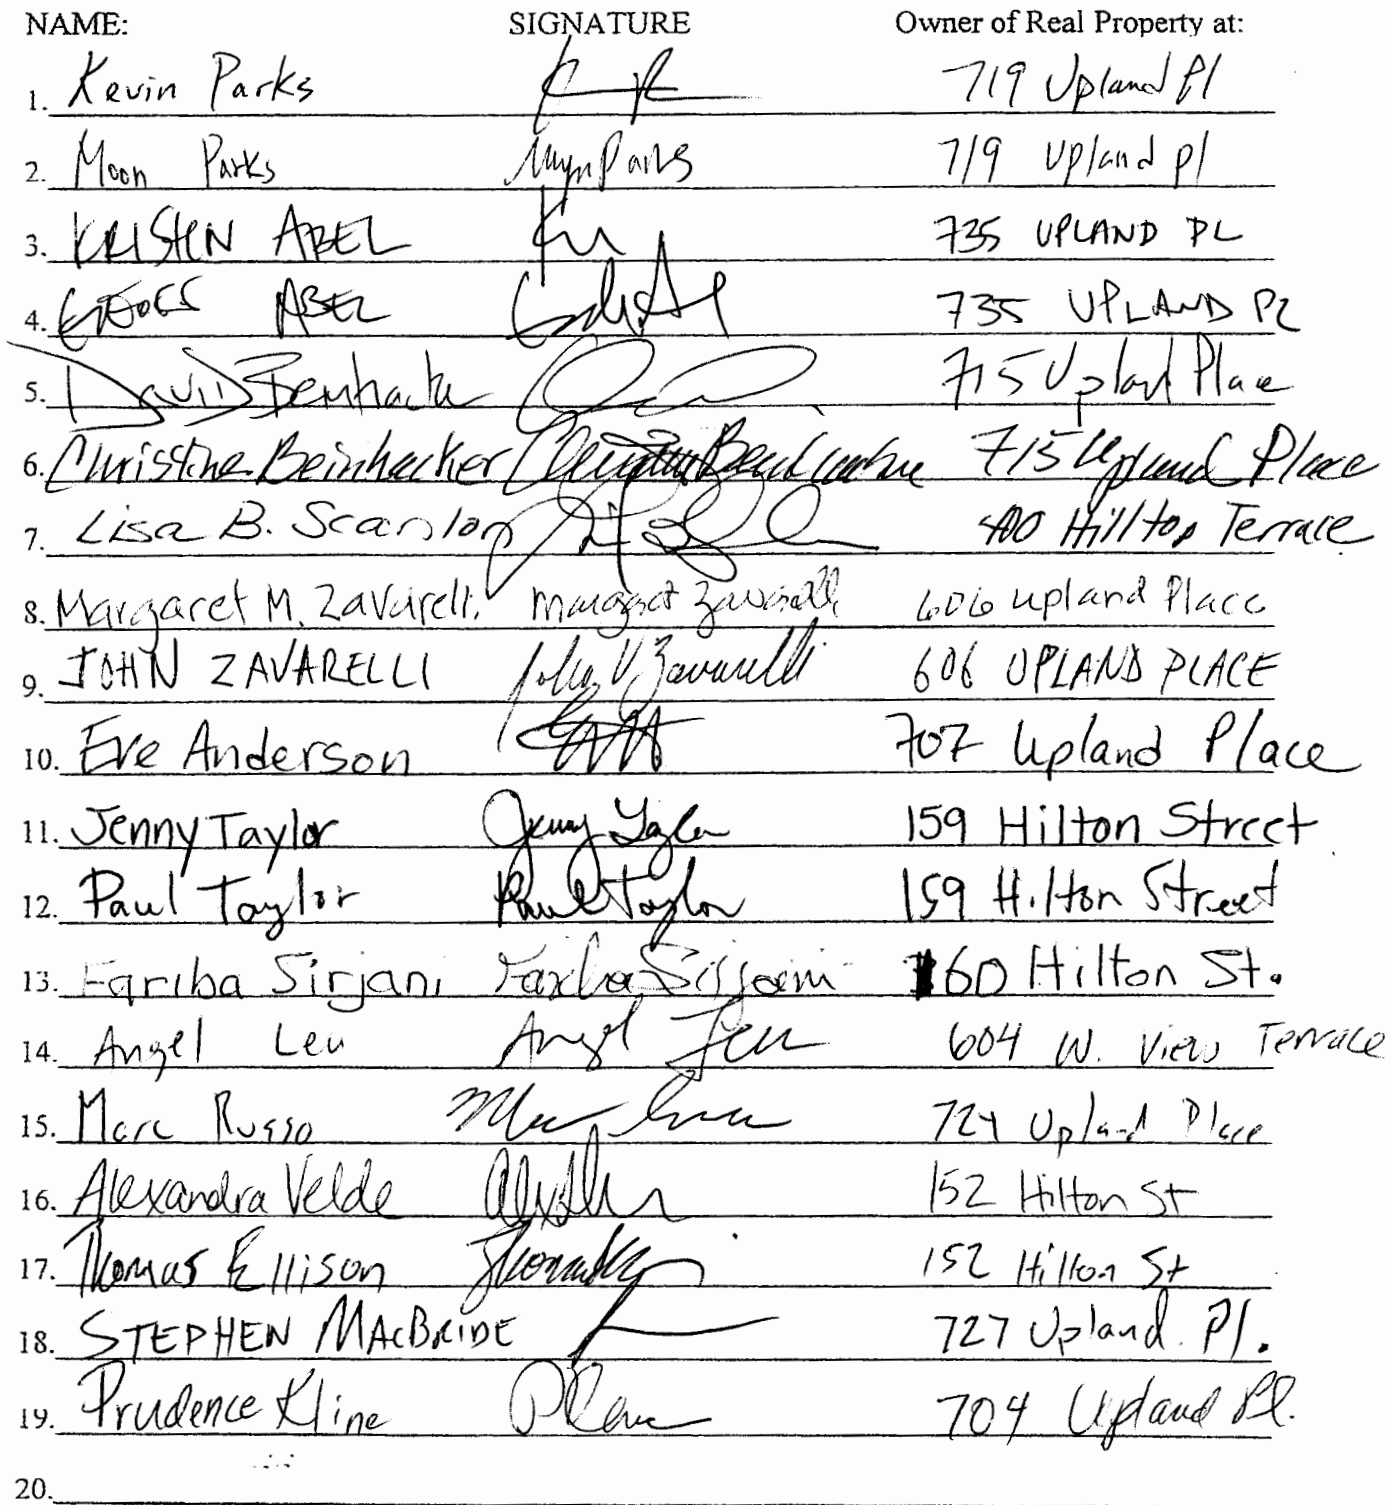 NAME: SIGNATURE Owner of Real Property at:
1. Kevin Parks 719 Upland Pl
2. Moon Parks Parks 719 Upland pl
3. KRISTEN ABEL 735 UPLAND PL
4. ABEL 735 UPLAND PL
5. David Beinhacker 715 Upland Place
6. Christine Beinhacker Christine Beinhacker 715 Upland Place
7. Lisa B. Scanlon Hilltop Terrace
8. Margaret M. Zavarelli Margaret Zavarelli 606 Upland Place
9. JOHN ZAVARELLI John V. Zavarelli 606 UPLAND PLACE
10. Eve Anderson 707 Upland Place
11. Jenny Taylor Jenny Taylor 159 Hilton Street
12. Paul Taylor Paul Taylor 159 Hilton Street
13. Fariba Sirjani Fariba Sirjani 160 Hilton St.
14. Angel Leu Angel Leu 604 W. View Terrace
15. Marc Russo 724 Upland Place
16. Alexandra Velde 152 Hilton St
17. Thomas Ellison 152 Hilton St
18. STEPHEN MACBRIDE 727 Upland Pl.
19. Prudence Kline 704 Upland Pl.
20.